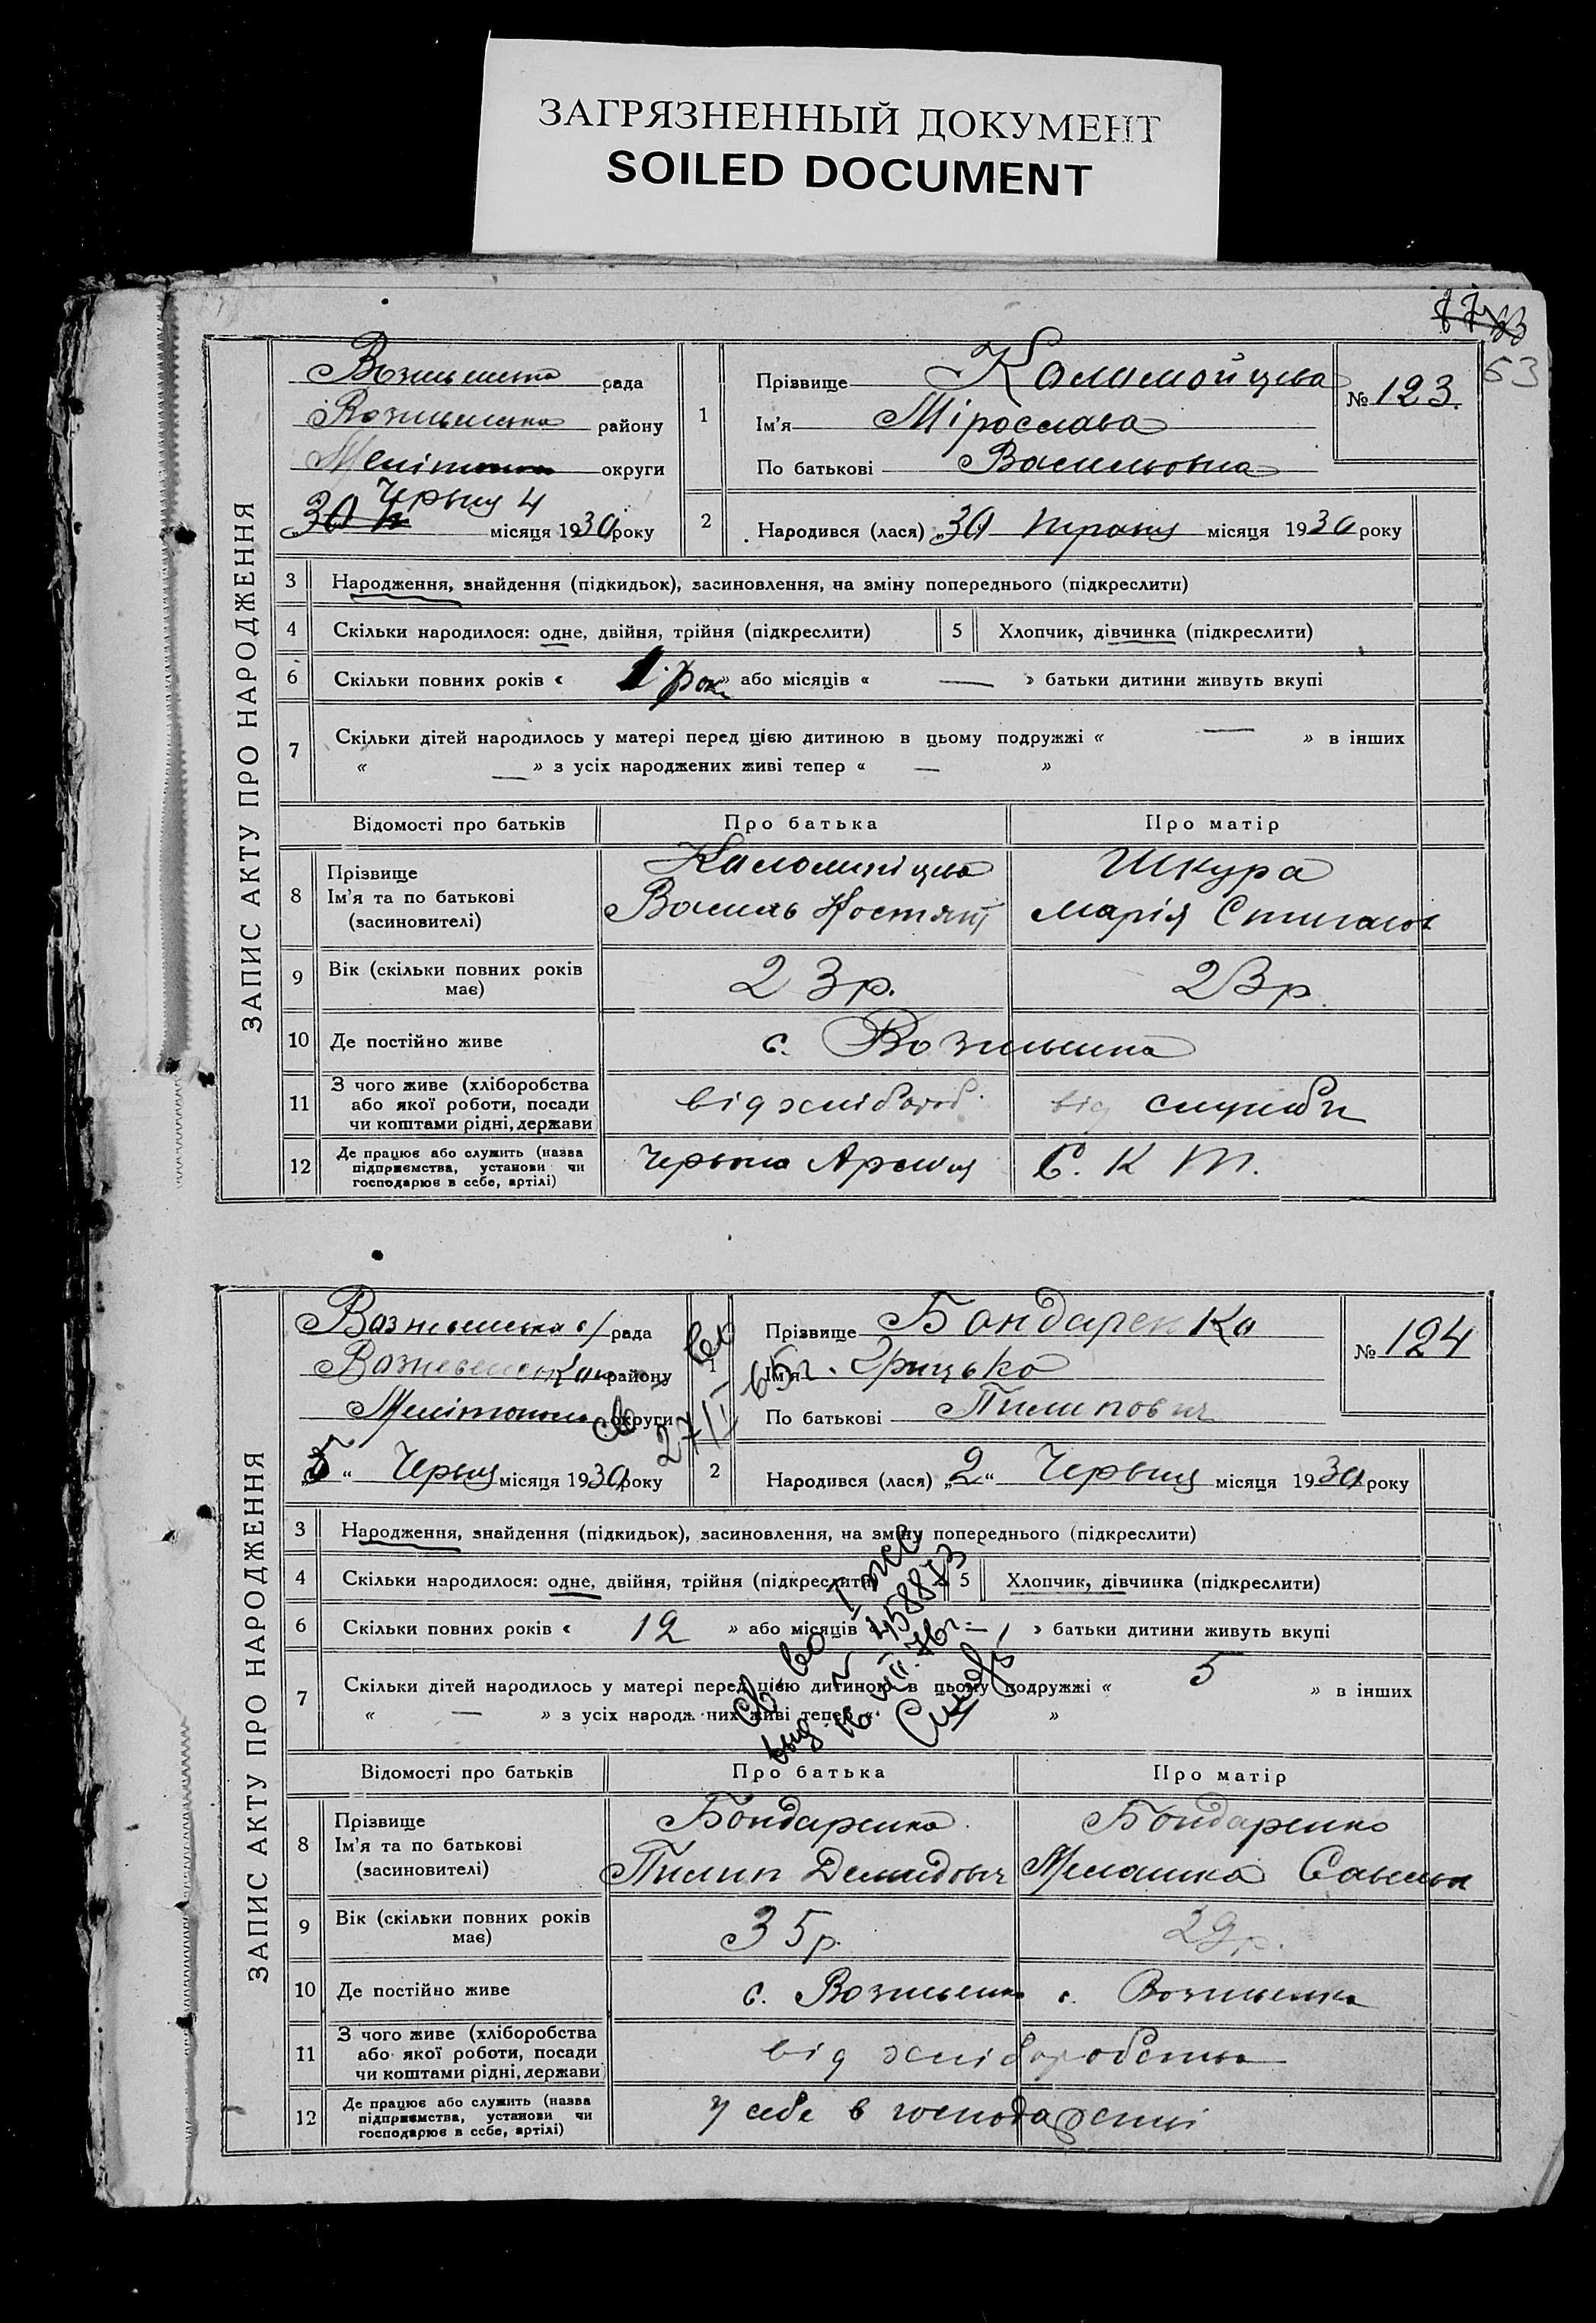 ЗАГРЯЗНЕННЫЙ ДОКУМЕНТ
SOILED DOCUMENT
63
ЗАПИС АКТУ ПРО НАРОДЖЕННЯ
рада
району
округи
Червня 4
місяця 1930 року
1
Прізвище
Ім'я Мірослава
По батькові Васильовна
№ 123.
2
Народився (лася) „30 травня місяця 1930 року
3 Народження, знайдення (підкидьок), засиновлення, на зміну попереднього (підкреслити)
4 Скільки народилося: одне, двійня, трійня (підкреслити) 5 Хлопчик, дівчинка (підкреслити)
6 Скільки повних років « 1 рок » або місяців « — » батьки дитини живуть вкупі
7 Скільки дітей народилось у матері перед цією дитиною в цьому подружжі « — » в інших
« — » з усіх народжених живі тепер « — »
Відомості про батьків Про батька Про матір
8 Прізвище
Ім'я та по батькові
(засиновителі)
Василь Костянт
Шкура
Марія
9 Вік (скільки повних років має) 23 р. 23 р.
10 Де постійно живе с.
11 З чого живе (хліборобства
або якої роботи, посади
чи коштами рідні, держави
від хлібороб. від служби
12 Де працює або служить (назва
підприємства, установи чи
господарює в себе, артілі)
С. К Т.
ЗАПИС АКТУ ПРО НАРОДЖЕННЯ
рада
району
округи
5 “ Червня місяця 1930 року
1
Прізвище Бондаренко
Ім'я Грицько
По батькові Пилипович
№ 124
2
Народився (лася) „2“ Червня місяця 1930 року
3 Народження, знайдення (підкидьок), засиновлення, на зміну попереднього (підкреслити)
4 Скільки народилося: одне, двійня, трійня (підкреслити) 5 Хлопчик, дівчинка (підкреслити)
6 Скільки повних років « 12 » або місяців « — » батьки дитини живуть вкупі
7 Скільки дітей народилось у матері перед цією дитиною в цьому подружжі « 5 » в інших
« — » з усіх народжених живі тепер « »
Відомості про батьків Про батька Про матір
8 Прізвище
Ім'я та по батькові
(засиновителі)
Бондаренко
Пилип Демидович
Бондаренко
Мелашка
9 Вік (скільки повних років має) 35 р. 29 р.
10 Де постійно живе с. с.
11 З чого живе (хліборобства
або якої роботи, посади
чи коштами рідні, держави
від хліборобства
12 Де працює або служить (назва
підприємства, установи чи
господарює в себе, артілі)
у себе в господарстві